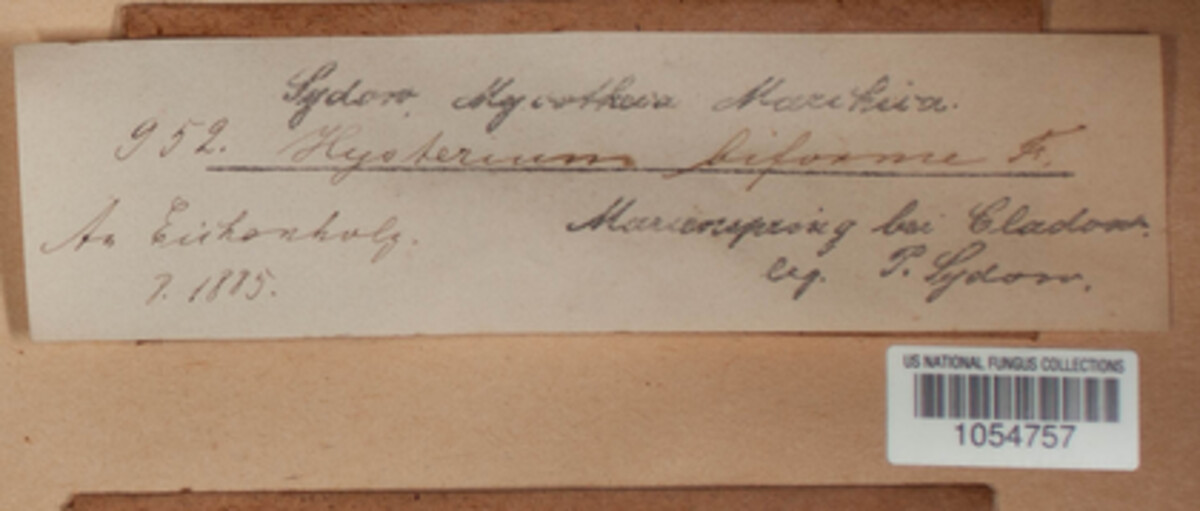 Sydow, Mycotheca Marchica.
952. Hysterium biforme F.
An Eichenholz.
7. 1885.
Marienspring bei Cladow.
leg. P. Sydow.
US NATIONAL FUNGUS COLLECTIONS
1054757